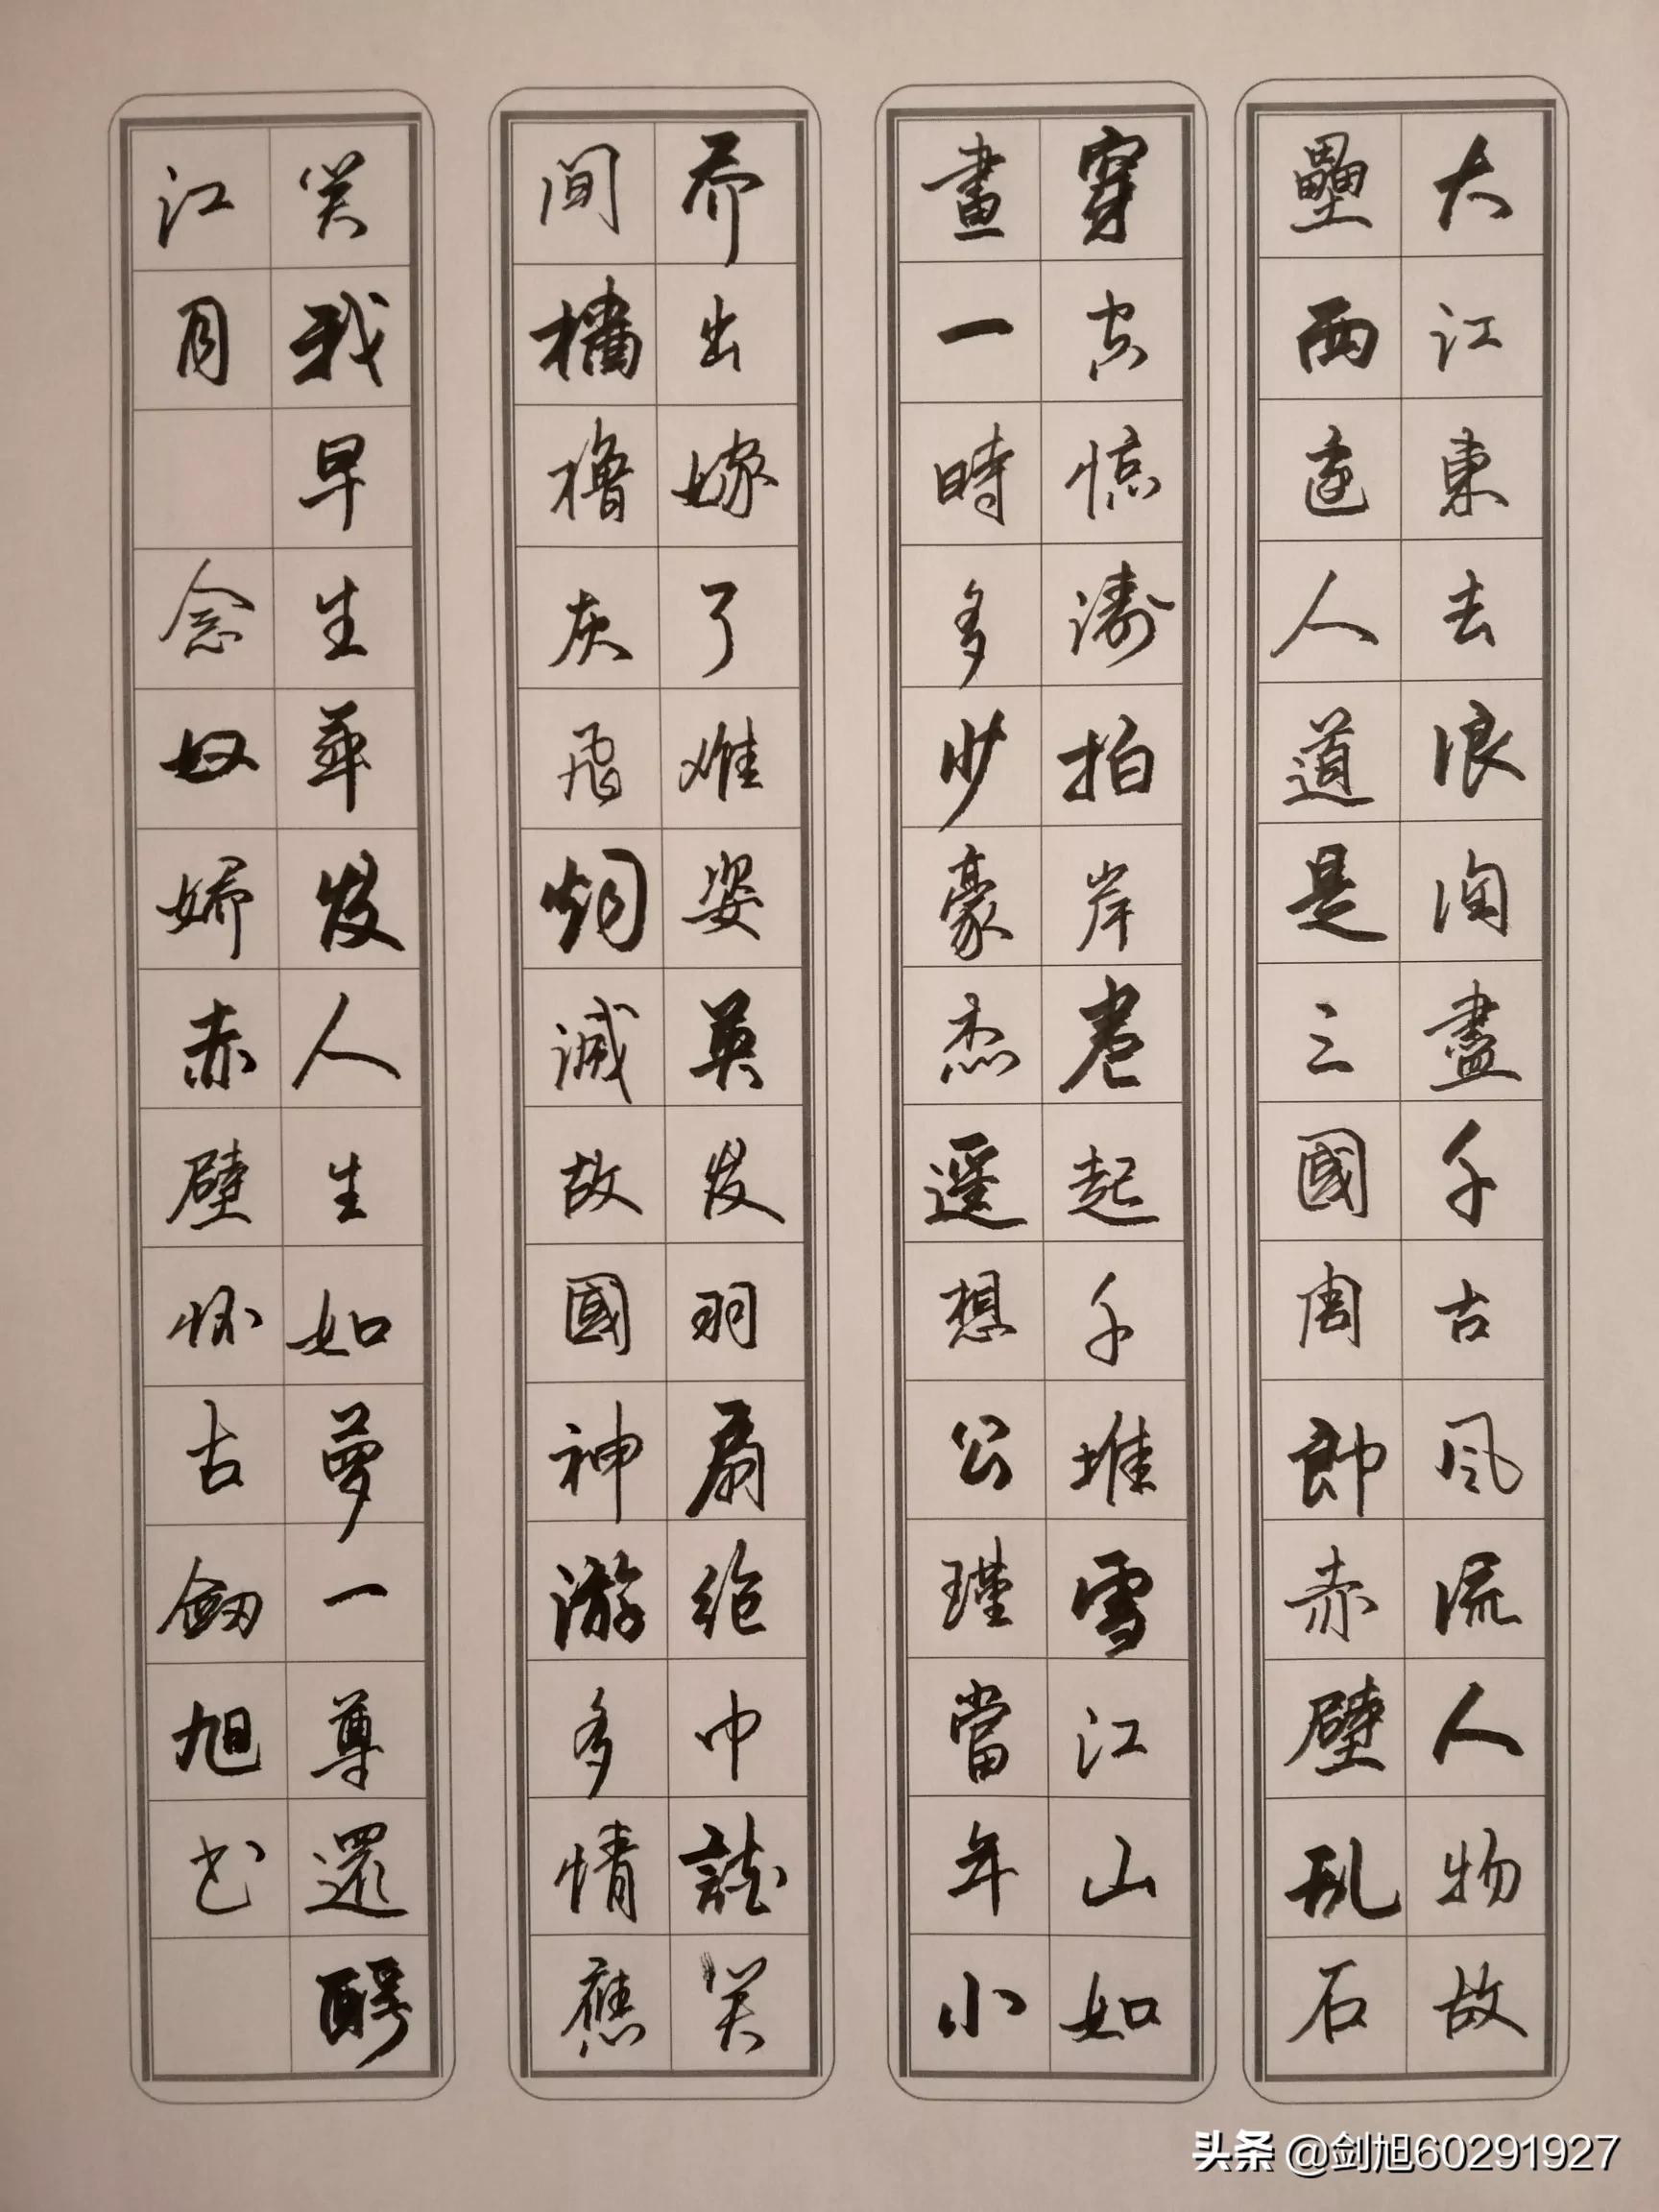 大江東去浪淘盡千古风流人物故
壘西邊人道是三國周郎赤壁乱石
穿空惊濤拍岸卷起千堆雪江山如
畫一時多少豪杰遥想公瑾當年小
乔出嫁了雄姿英发羽扇纶巾談笑
間檣櫓灰飛烟滅故國神游多情應
笑我早生華发人生如夢一尊還酹
江月 念奴嬌赤壁怀古劍旭书
头条 @剑旭60291927